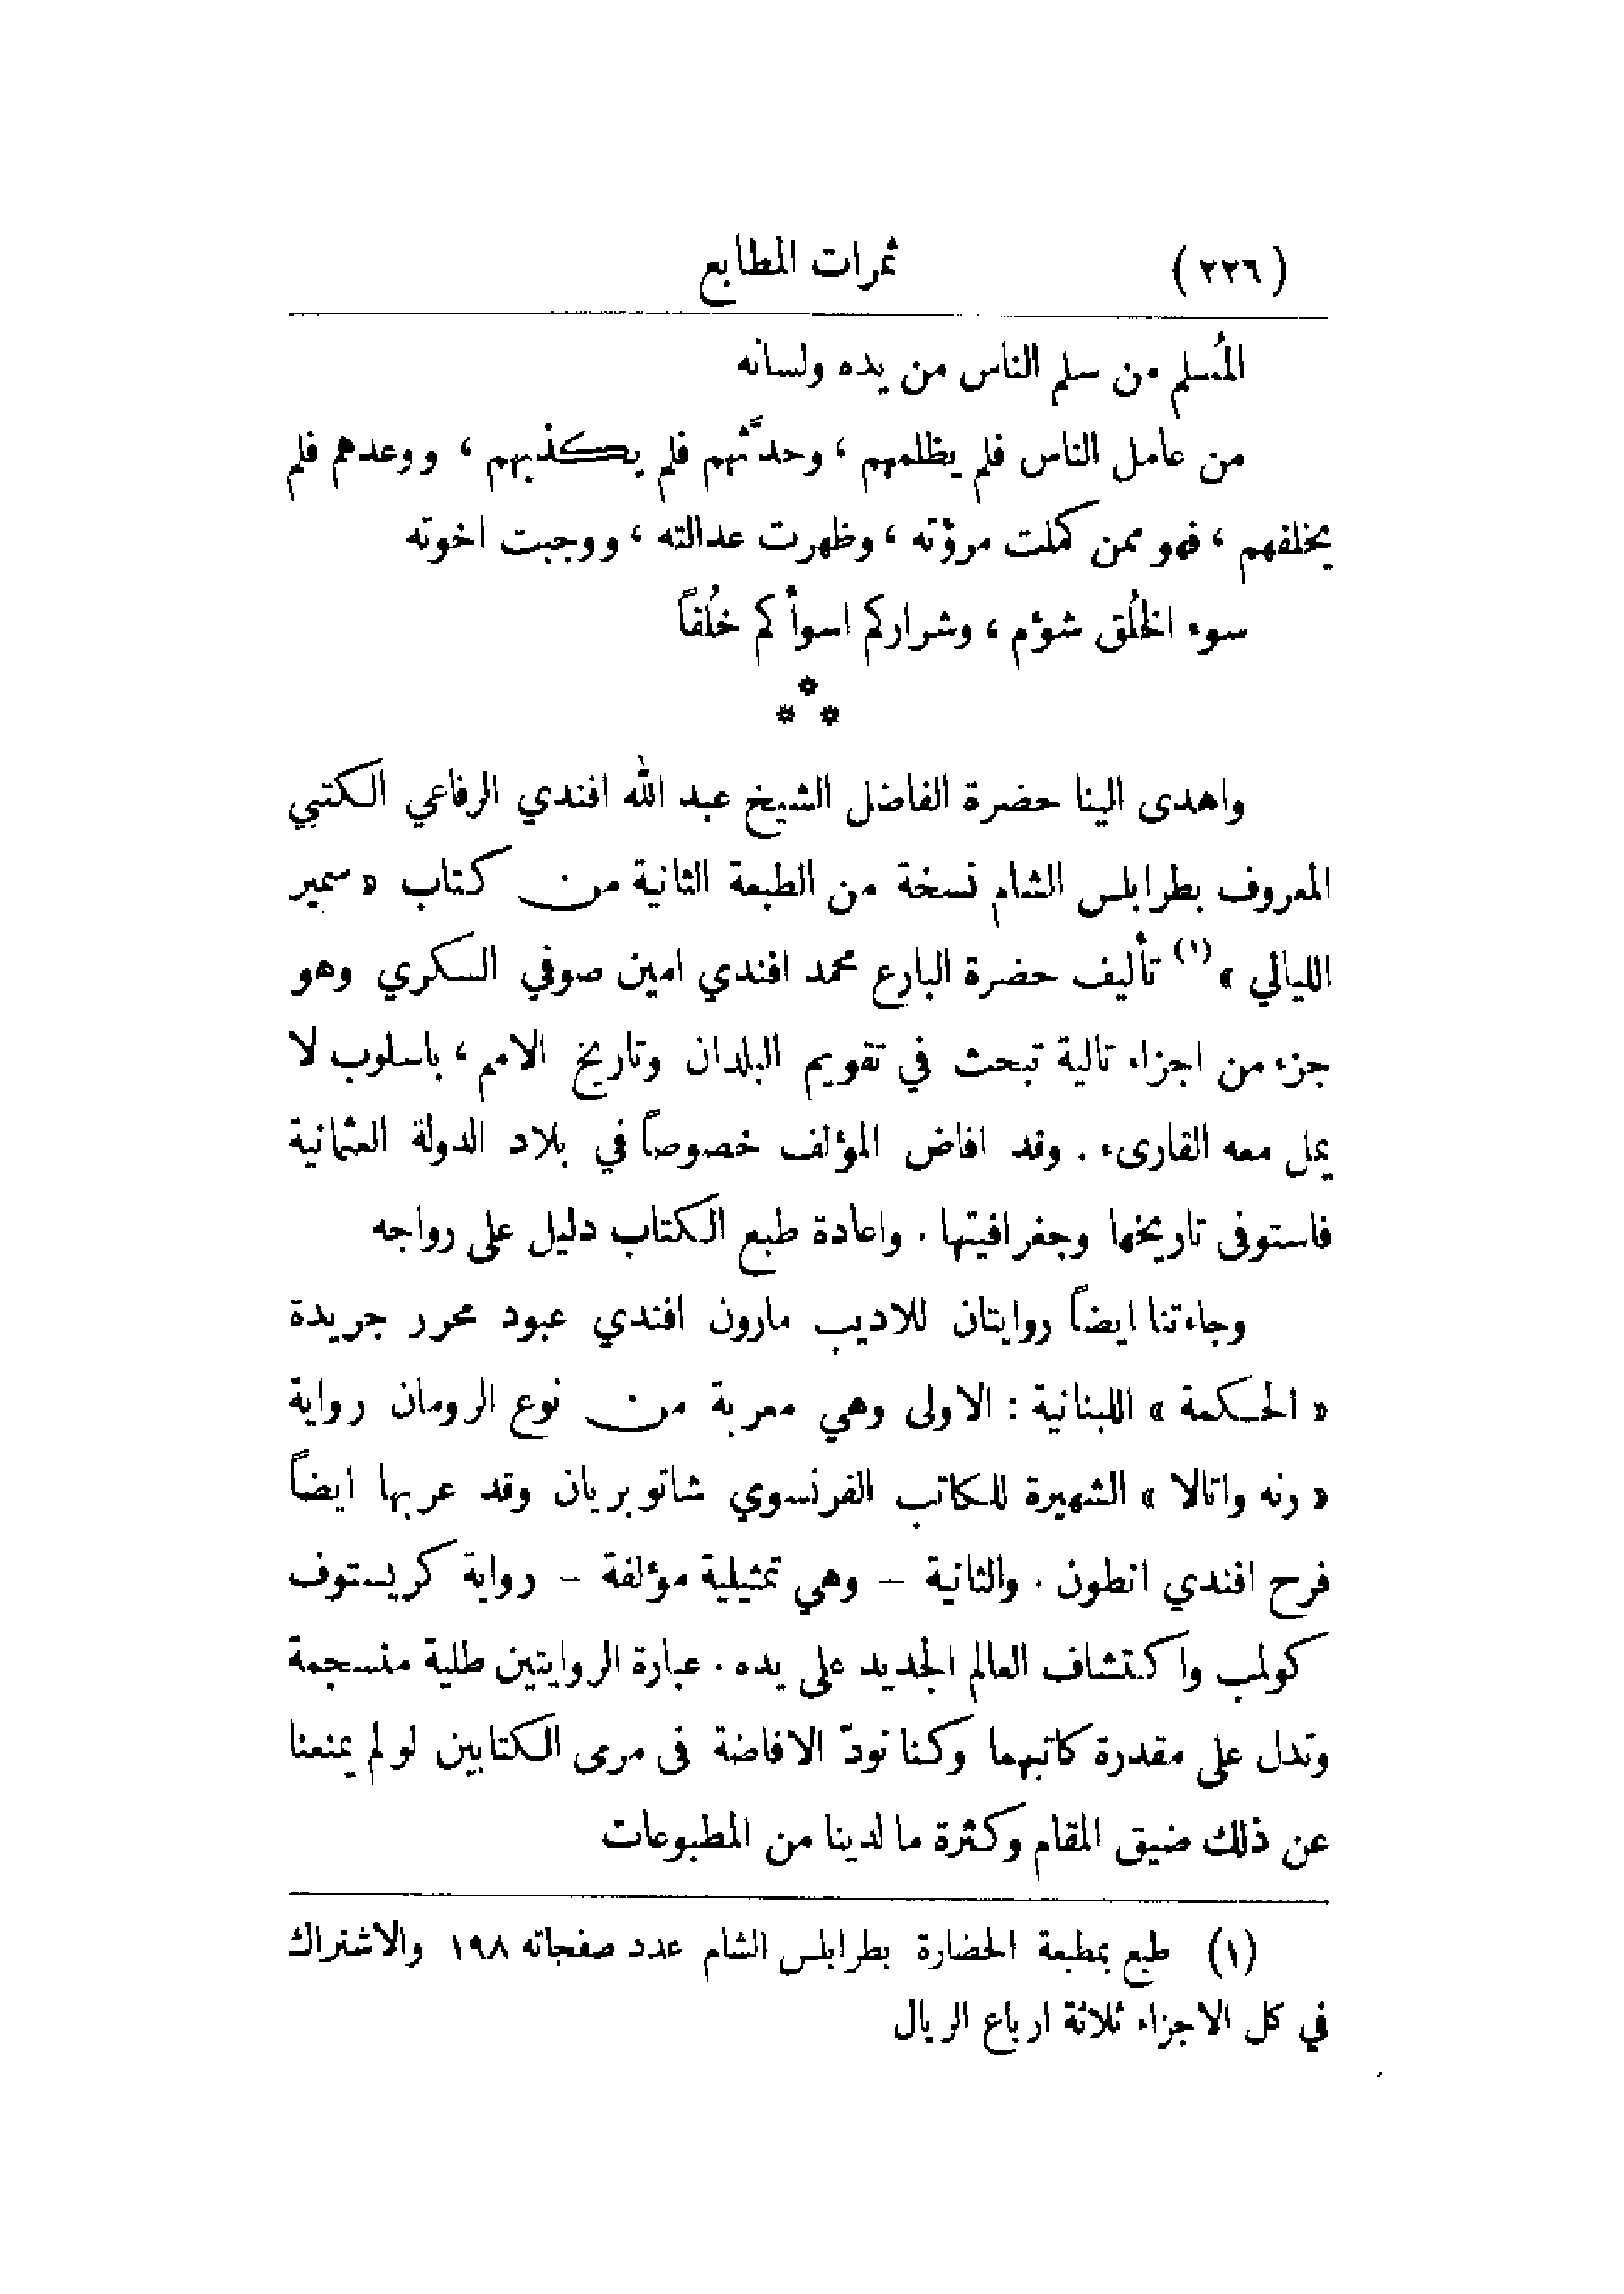 (٢٢٦) ثمرات المطابع
المُسلم من سلم الناس من يده ولسانه
من عامل الناس فلم يظلمهم ، وحدَّثهم فلم يكذبهم ، ووعدهم فلم
يخلفهم ، فهو ممن كملت مروّته ، وظهرت عدالته ، ووجبت اخوته
سوء الخُلق شؤم ، وشراركم اسوأكم خُلقاً
* * *
واهدى الينا حضرة الفاضل الشيخ عبد الله افندي الرفاعي الكتبي
المعروف بطرابلس الشام نسخة من الطبعة الثانية من كتاب « سمير
الليالي » (١) تأليف حضرة البارع محمد افندي امين صوفي السكري وهو
جزء من اجزاء تالية تبحث في تقويم البلدان وتاريخ الامم ، باسلوب لا
يمل معه القارىء . وقد افاض المؤلف خصوصاً في بلاد الدولة العثمانية
فاستوفى تاريخها وجغرافيتها . واعادة طبع الكتاب دليل على رواجه
وجاءتنا ايضاً روايتان للاديب مارون افندي عبود محرر جريدة
« الحكمة » اللبنانية : الاولى وهي معربة من نوع الرومان رواية
« رنه واتالا » الشهيرة للكاتب الفرنسوي شاتوبريان وقد عربها ايضاً
فرح افندي انطون . والثانية – وهي تمثيلية مؤلفة – رواية كريستوف
كولمب واكتشاف العالم الجديد على يده . عبارة الروايتين طلية منسجمة
وتدل على مقدرة كاتبهما وكنا نودّ الافاضة في مرمى الكتابين لو لم يمنعنا
عن ذلك ضيق المقام وكثرة ما لدينا من المطبوعات
(١) طبع بمطبعة الحضارة بطرابلس الشام عدد صفحاته ١٩٨ والاشتراك
في كل الاجزاء ثلاثة ارباع الريال